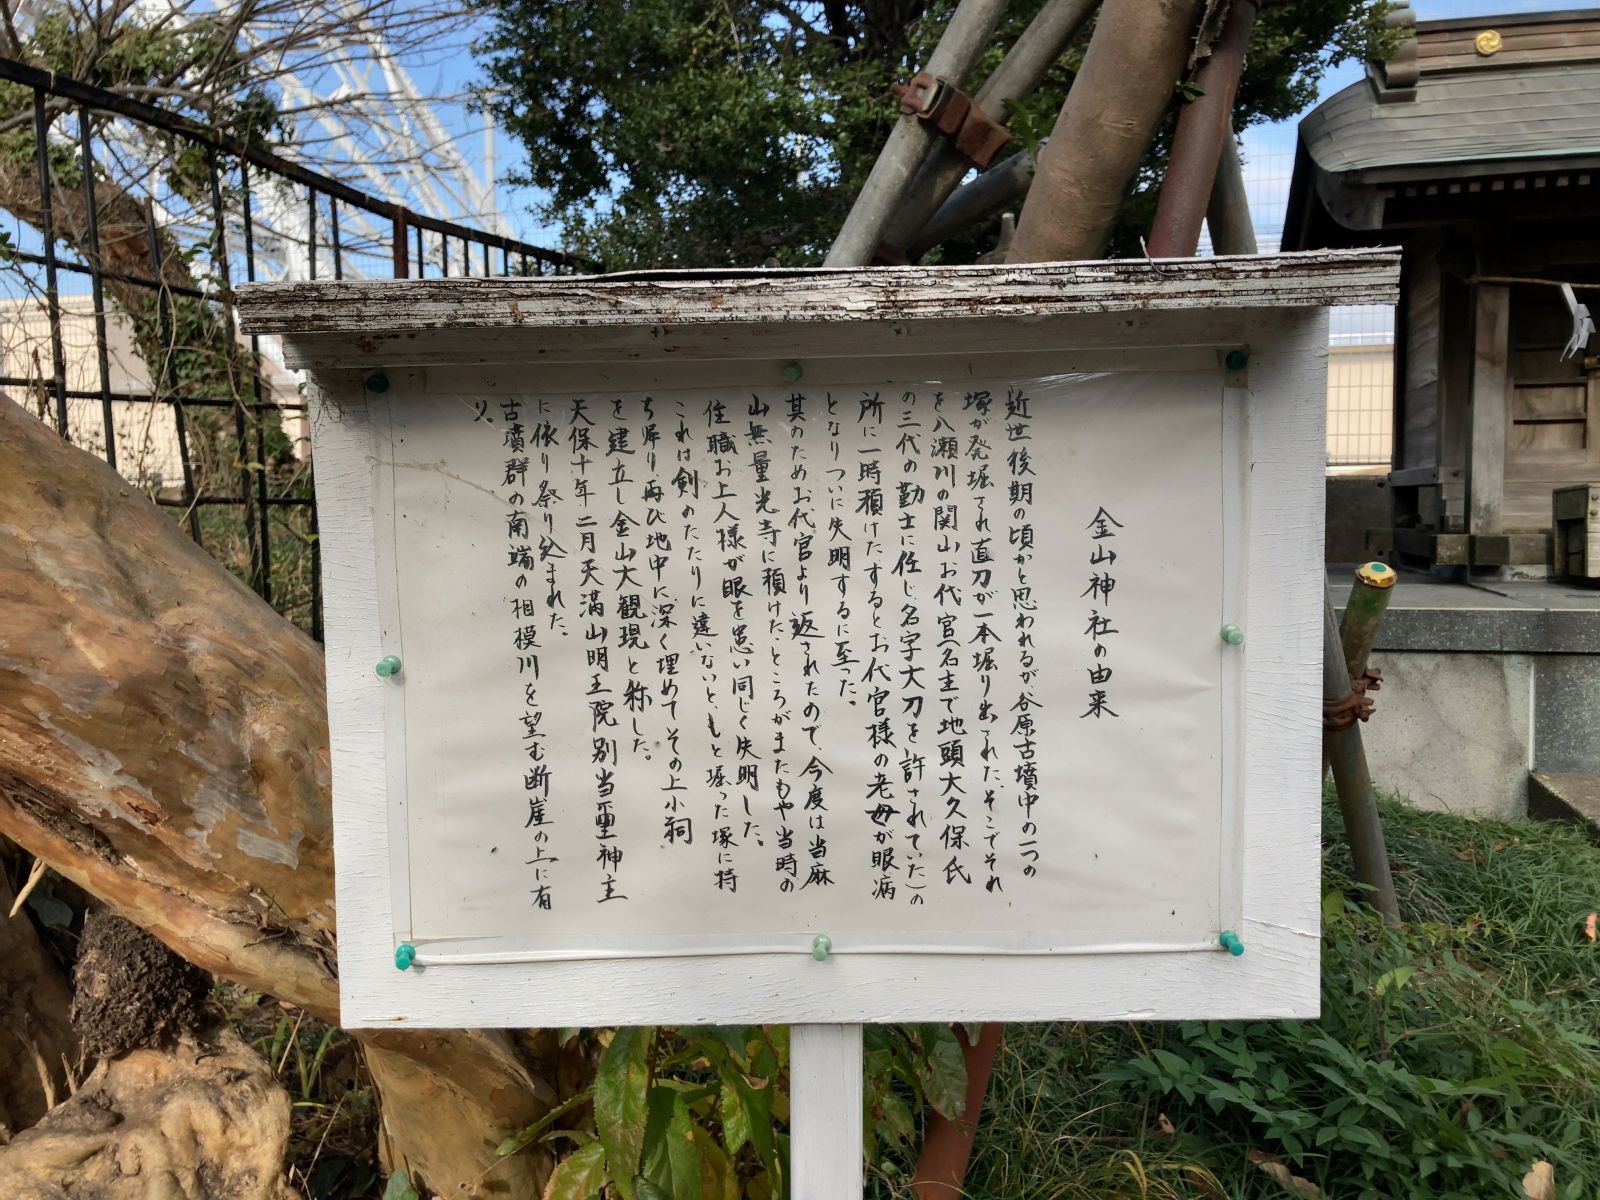 金山神社の由来
近世後期の頃かと思われるが、谷原古墳中の一つの
塚が発堀され直刀が一本堀り出された、そこでそれ
を八瀬川の関山お代官(名主で地頭大久保氏
の三代の勤士に任じ名字大刀を許されていた)の
所に一時預けたするとお代官様の老母が眼病
となりついに失明するに至った。
其のためお代官より返されたので、今度は当麻
山無量光寺に預けた、ところがまたもや当時の
住職お上人様が眼を患い同じく失明した。
これは剣のたたりに違いないと、もと堀った塚に持
ち帰り、再び地中に深く埋めてその上小祠
を建立し金山大観現と称した。
天保十年二月天満山明王院別当重神主
に依り祭り込まれた。
古墳群の南端の相模川を望む断崖の上に有
り。